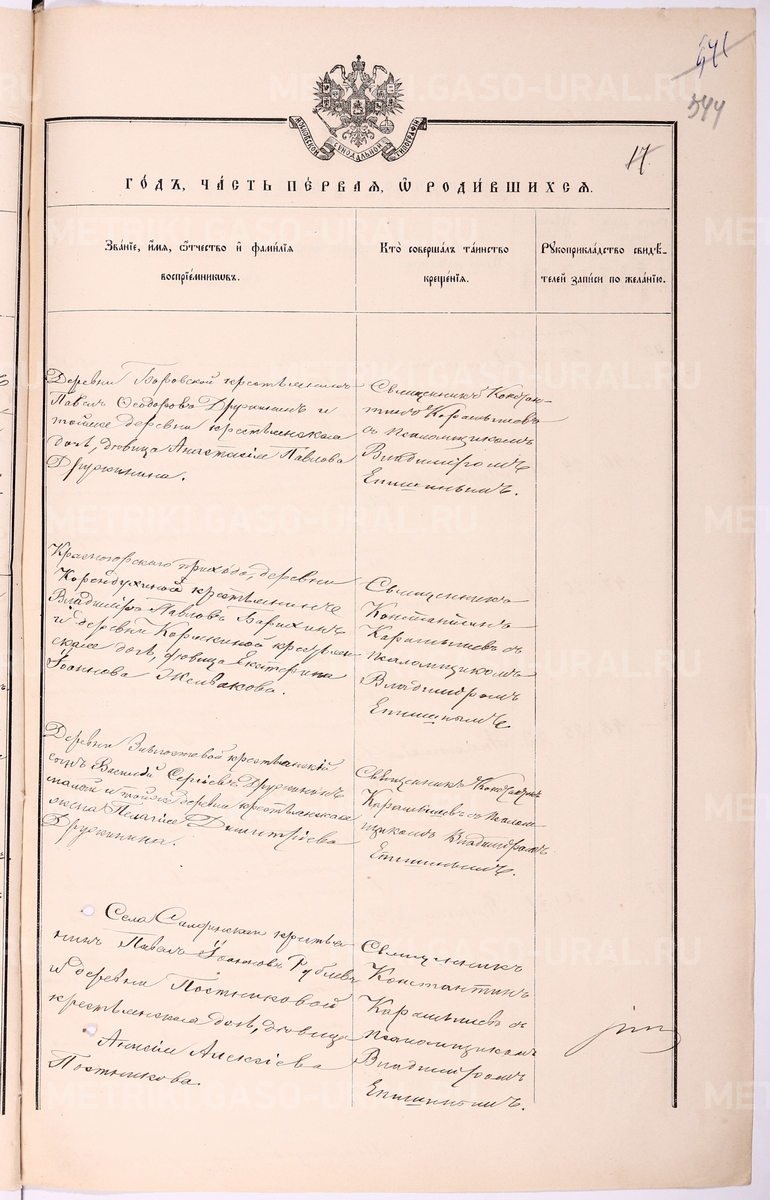 541
544
17.
МОСКОВСКОЙ СѴНОДАЛЬНОЙ ТИПОГРАФІИ
ГО́ДЪ, ЧА́СТЬ ПЕ́РВАЯ, Ѡ҆ РОДИ́ВШИХСЯ.
Зва́нїе, и҆́мя, ѻ҆́тчество и҆ фами́лїя
воспрїе́мникѡвъ.
Кто̀ соверша́лъ та́инство
креще́нїя.
Рꙋкоприкла́дство свидѣ́-
телей за́писи по жела́нїю.
Деревни Боровской крестьянинъ
Павелъ Ѳеодоровъ Дружининъ и
тойже деревни крестьянская
дочь, дѣвица Анастасія Павлова
Дружинина.
Священникъ Констан-
тинъ Карамышевъ
съ псаломщикомъ
Владиміромъ
Епишинымъ.
Красногорскаго прихода, деревни
крестьянинъ
Владиміръ Павловъ
и деревни крестьян-
ская дочь, дѣвица Екатерина
Іоаннова Желвакова.
Священникъ
Константинъ
Карамышевъ съ
псаломщикомъ
Владиміромъ
Епишинымъ.
Деревни крестьянскій
сынъ Василій Сергіевъ Дружининъ
и тойже деревни крестьянская
жена Пелагія Димитріева
Дружинина.
Священникъ Константинъ
Карамышевъ съ псалом-
щикомъ Владиміромъ
Епишинымъ.
Села крестья-
нинъ Павелъ Іоанновъ Рублевъ
и деревни Постниковой
крестьянская дочь, дѣвица
Анисія Алексіева
Постникова.
Священникъ
Константинъ
Карамышевъ съ
псаломщикомъ
Владиміромъ
Епишинымъ.
METRIKI.GASO-URAL.RU